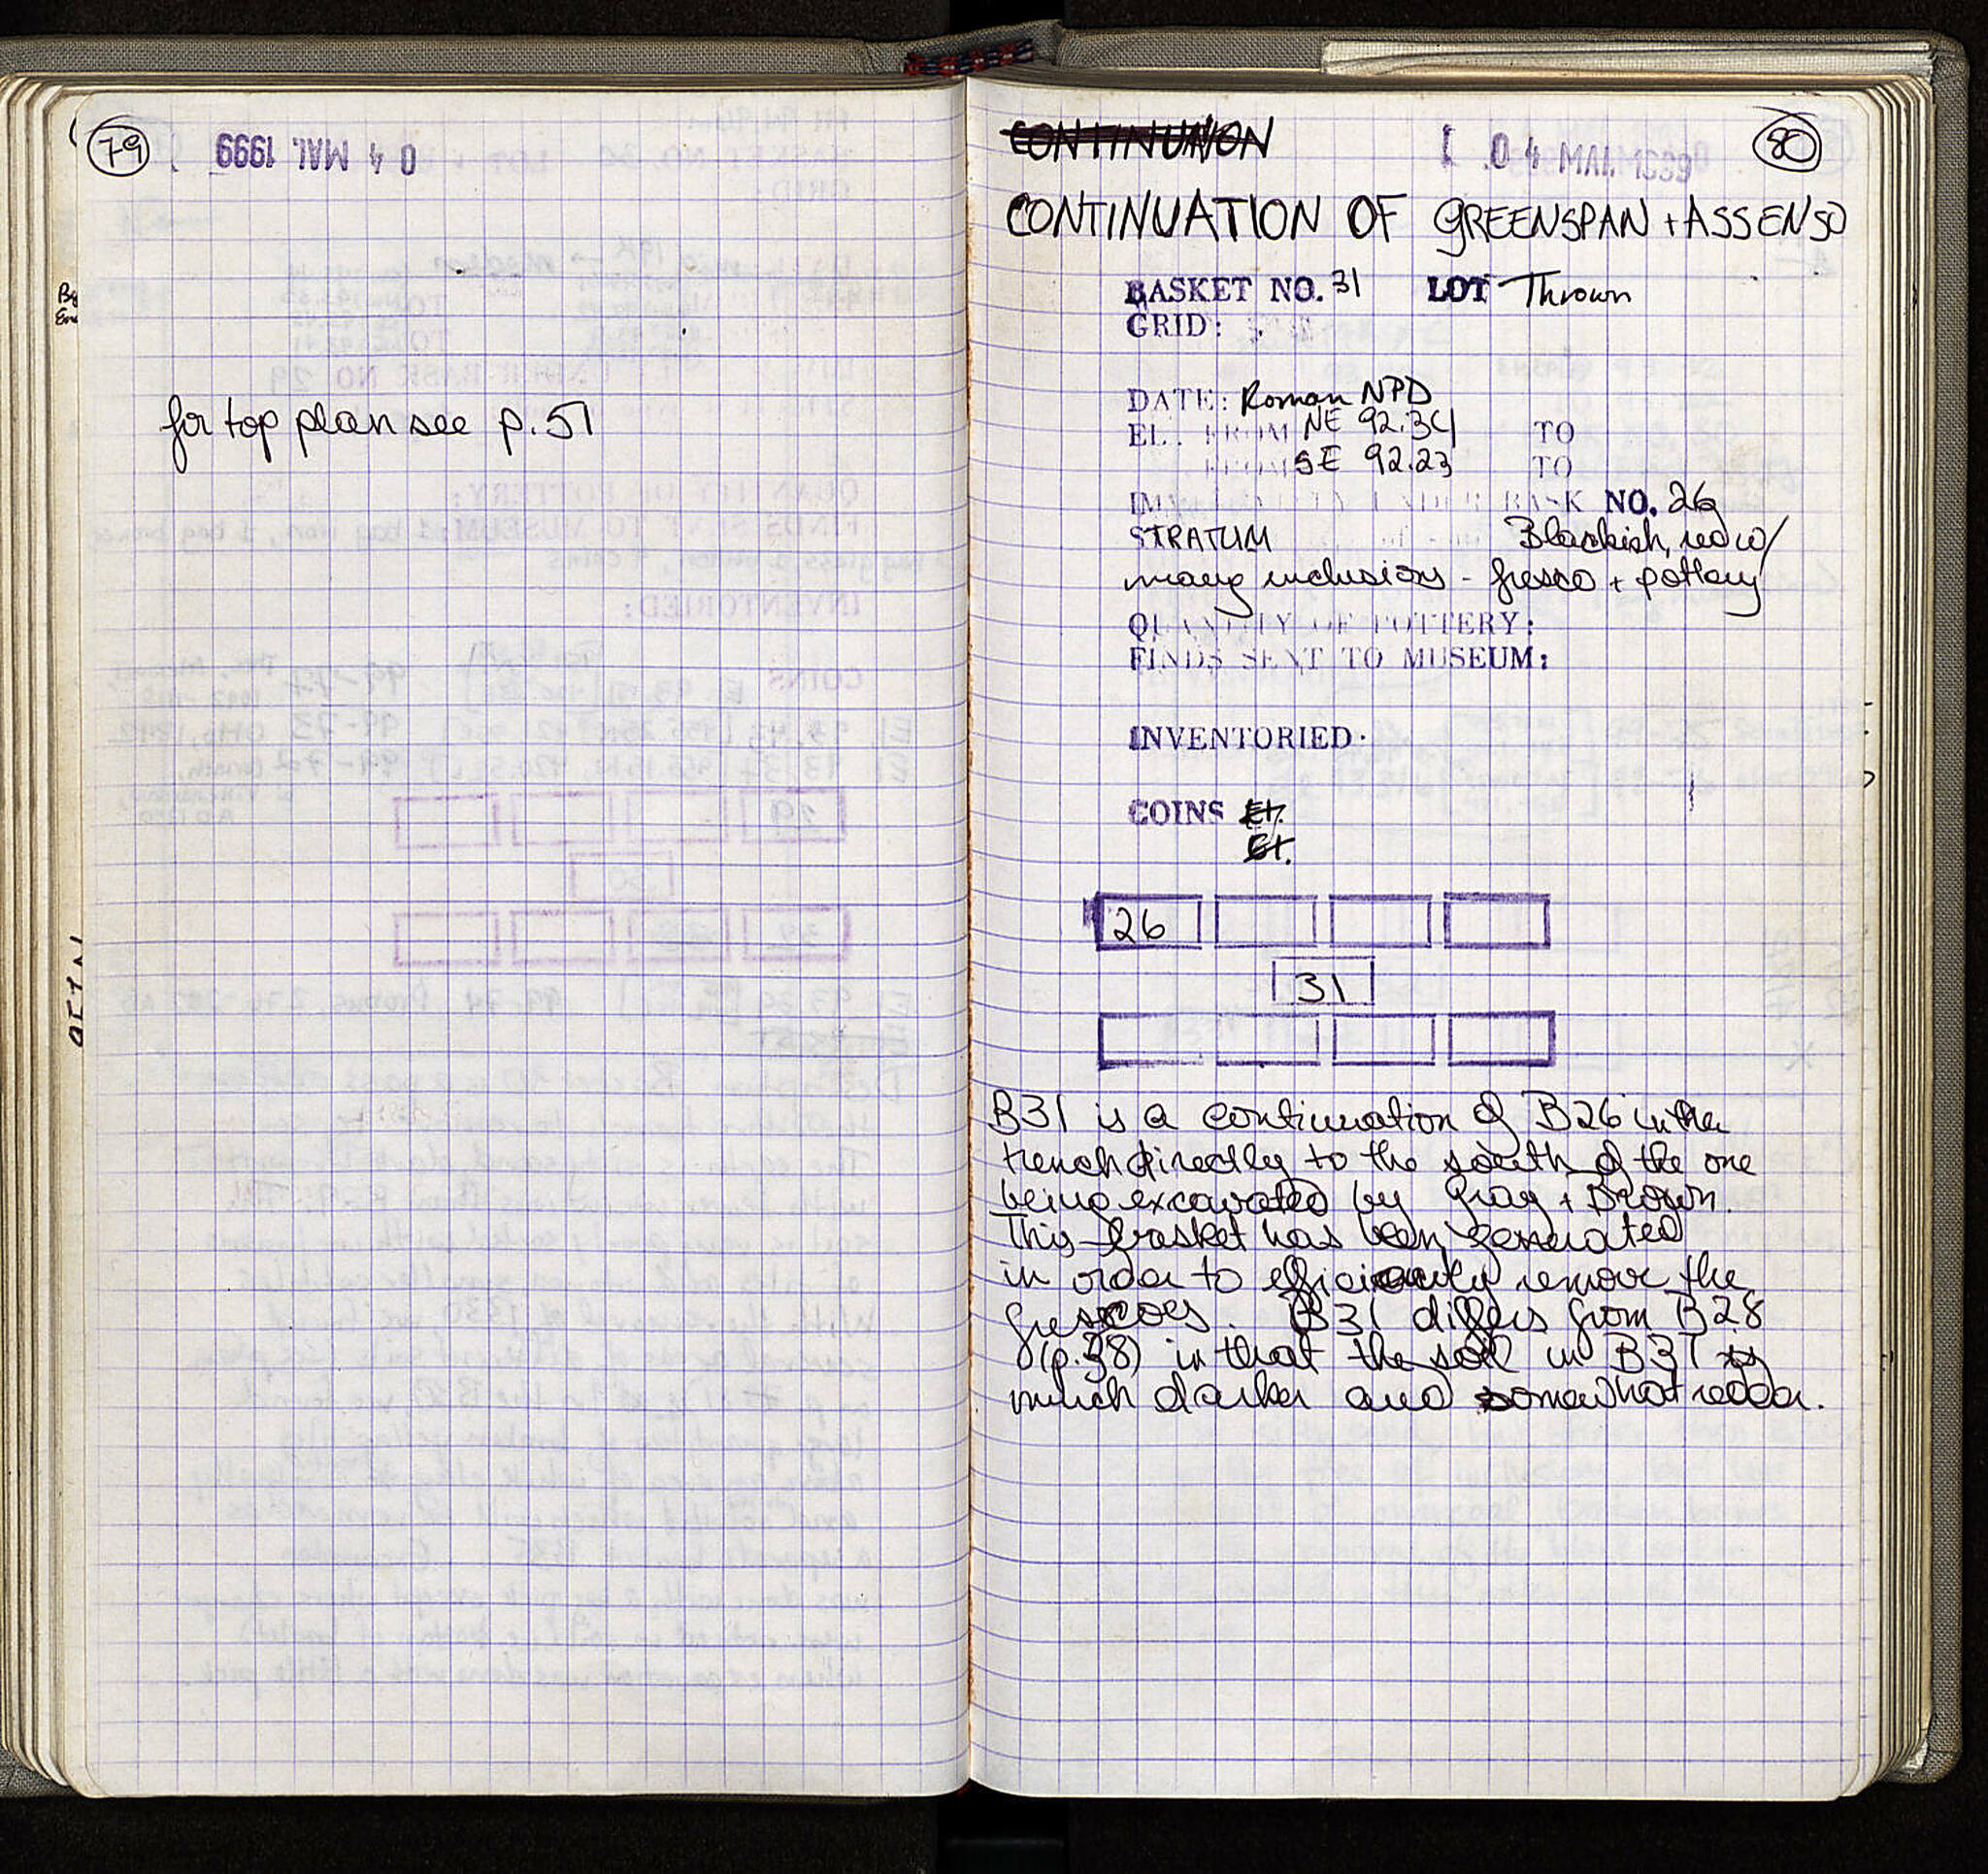 79
04 MAI 1999
for top plan see p. 51
CONTINUATION
04 MAI 1999
80
CONTINUATION OF GREENSPAN + ASSENSO
BASKET NO. 31 LOT Thrown
GRID:
DATE: Roman NPD
EL. FROM NE 92.34 TO
FROM SE 92.23 TO
UNDER BASK NO. 26
STRATUM Blackish, red w/
many inclusions - fresco + pottery
QUANTITY OF POTTERY:
FINDS SENT TO MUSEUM:
INVENTORIED:
COINS El.
El.
26
31
B31 is a continuation of B26 in the
trench directly to the south of the one
being excavated by Gray + Brown.
This basket has been generated
in order to efficiently remove the
frescoes. B31 differs from B28
(p.38) in that the soil in B31 is
much darker and somewhat redder.